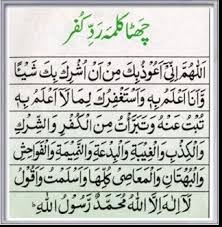 چھٹا کلمہ ردِّ کفر
اَللّٰهُمَّ اِنِّیْ اَعُوْذُبِكَ مِنْ اَنْ اُشْرِكَ بِكَ شَیْئًا
وَّاَنَا اَعْلَمُ بِهٖ وَاَسْتَغْفِرُكَ لِمَا لَآ اَعْلَمُ بِهٖ
تُبْتُ عَنْهُ وَتَبَرَّأْتُ مِنَ الْكُفْرِ وَالشِّرْكِ
وَالْكِذْبِ وَالْغِیْبَةِ وَالْبِدْعَةِ وَالنَّمِیْمَةِ وَالْفَوَاحِشِ
وَالْبُهْتَانِ وَالْمَعَاصِیْ كُلِّهَا وَاَسْلَمْتُ وَاَقُوْلُ
لَآ اِلٰهَ اِلَّا اللّٰهُ مُحَمَّدٌ رَّسُوْلُ اللّٰهِ